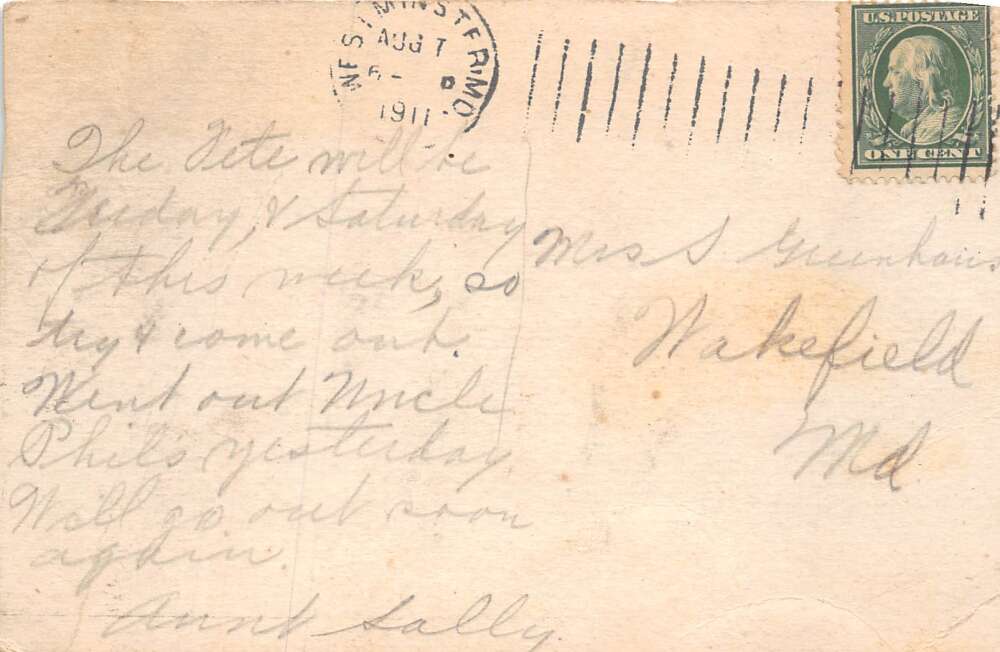 WESTMINSTER, MD.
AUG 7
6- P
1911
U.S. POSTAGE
ONE CENT
The Fete will be
& Saturday
of this week, so
try & come out.
Went out Uncle
Phil's yesterday.
Will go out soon
again.
Aunt Sally.
Mrs S
Wakefield
Md